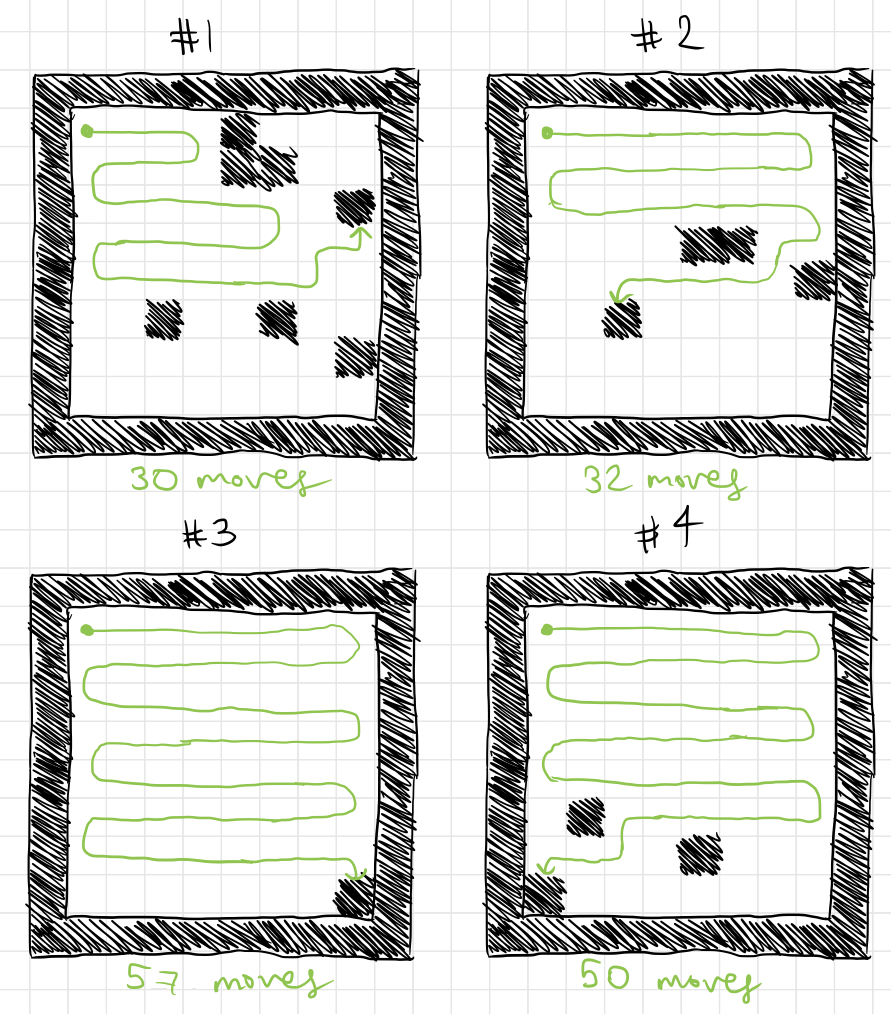 #1
#2
30 moves
32 moves
#3
#4
57 moves
50 moves